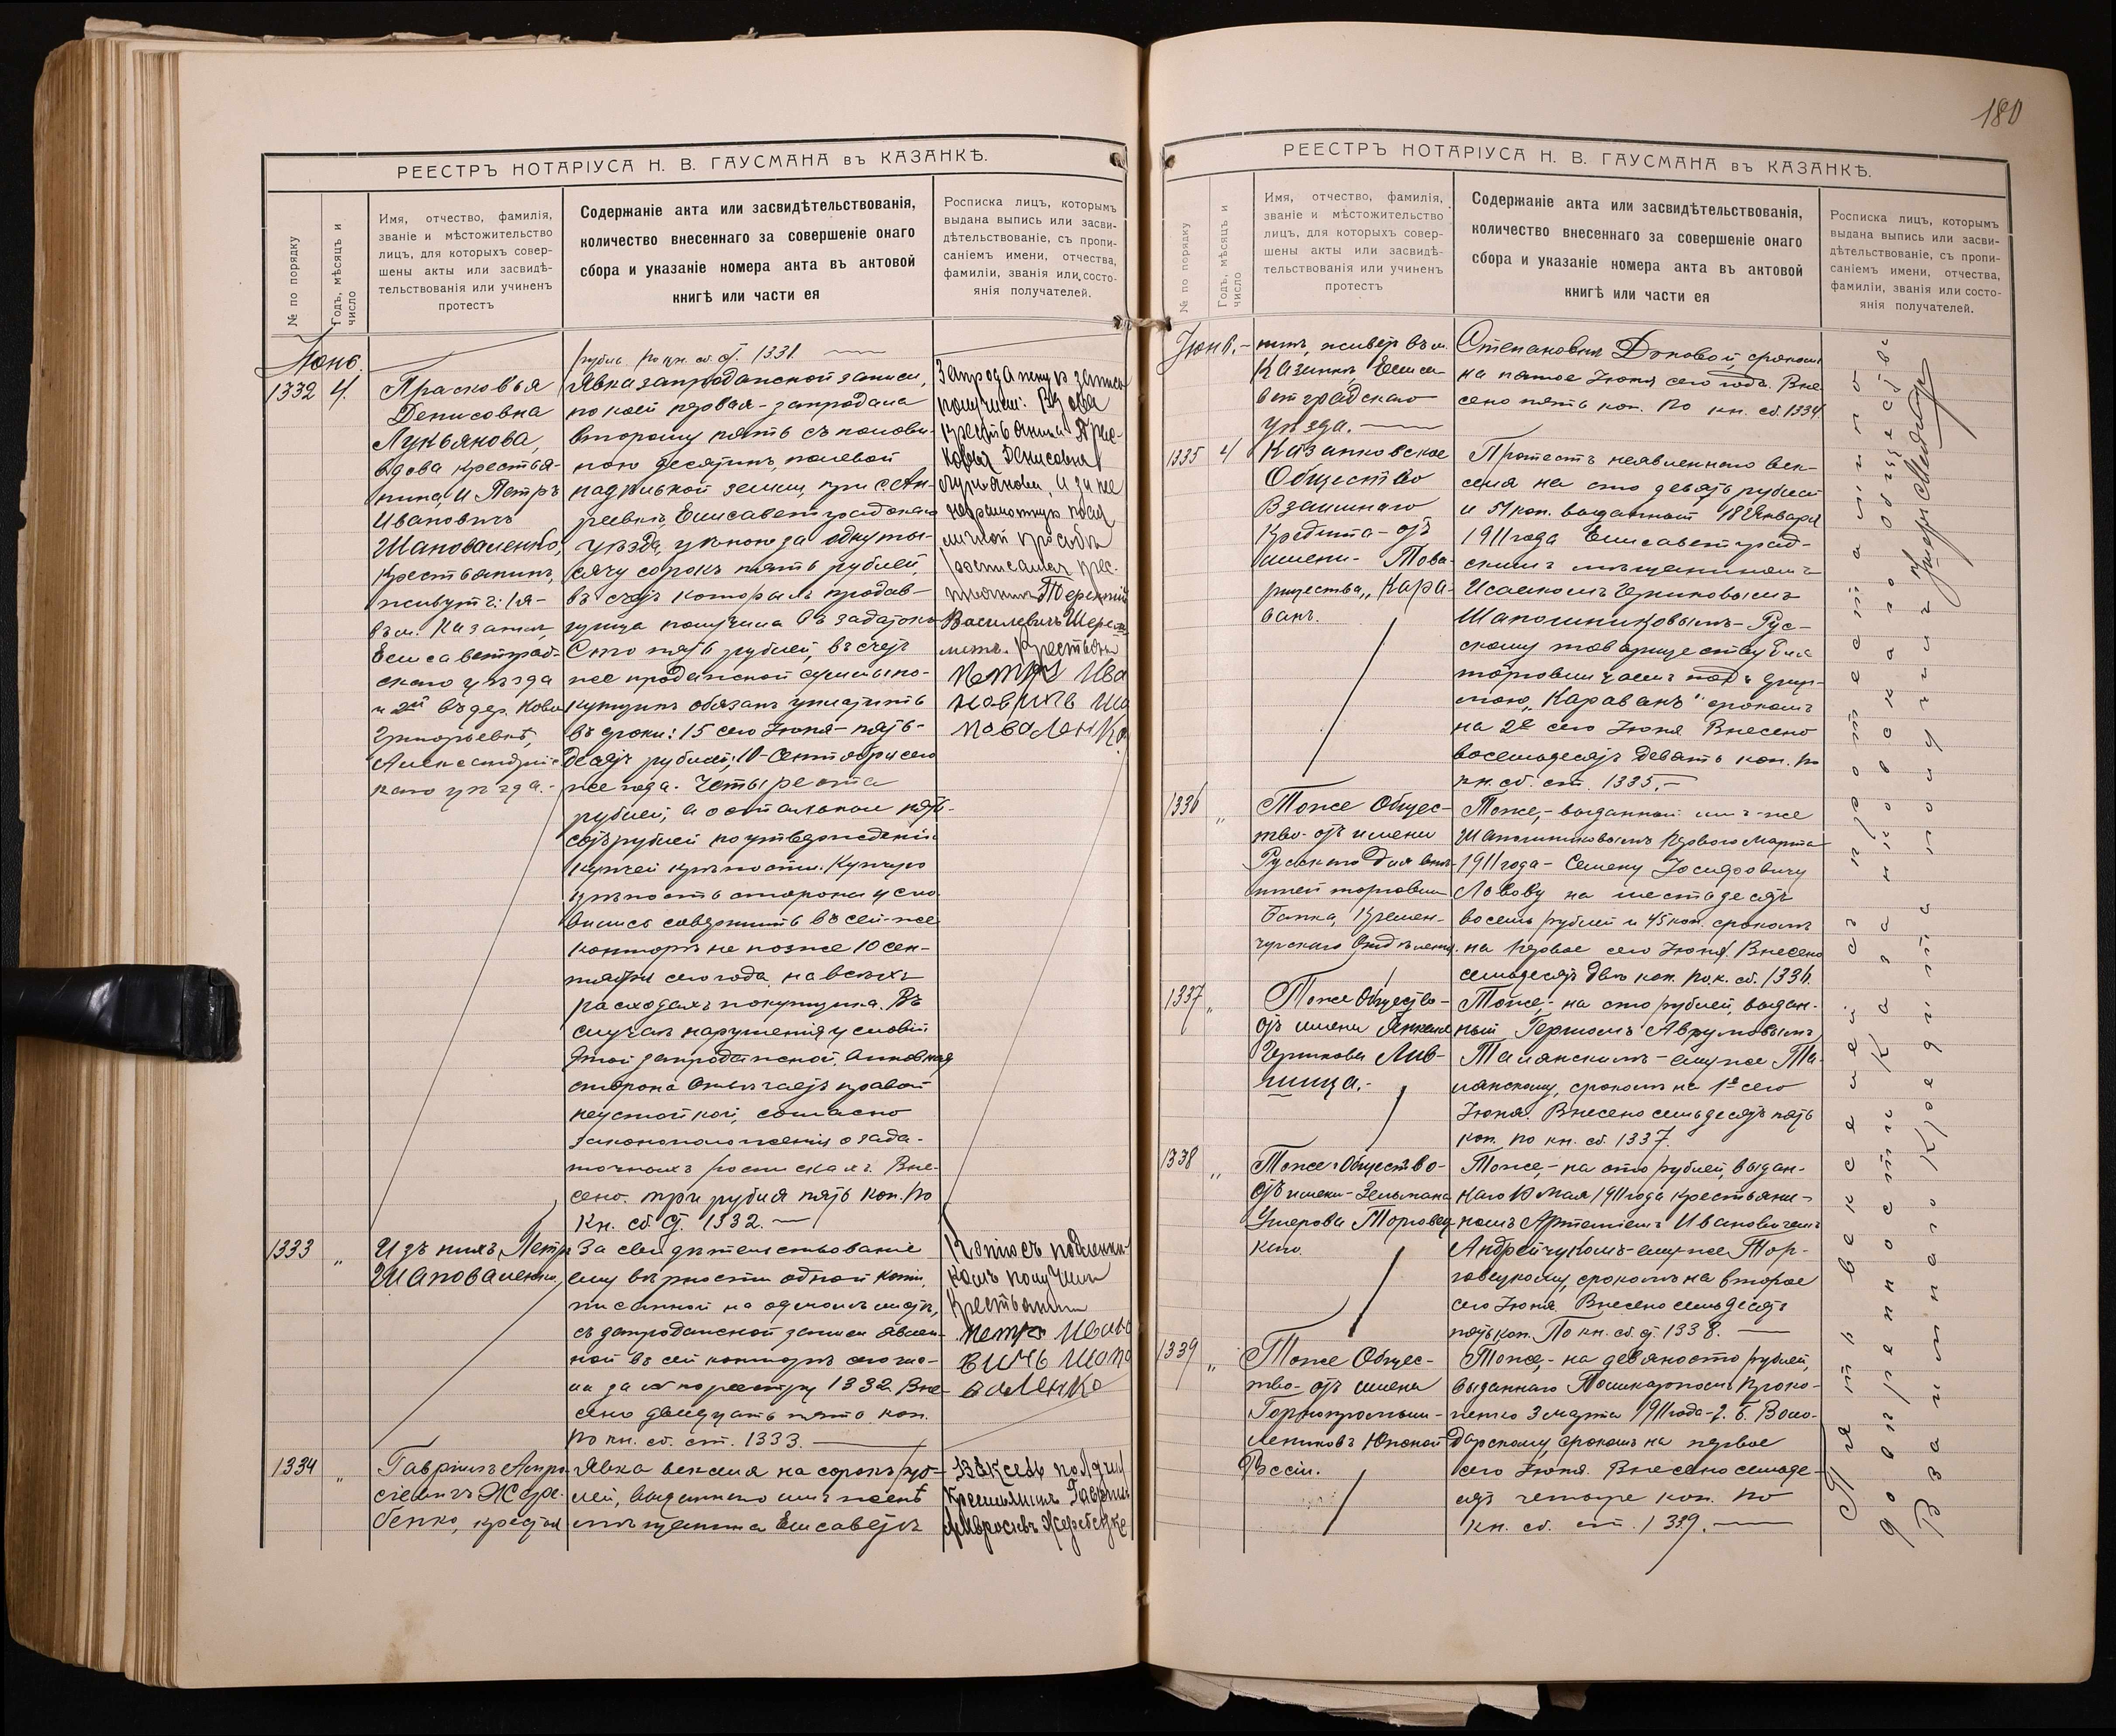 РЕЕСТРЪ НОТАРІУСА Н. В. ГАУСМАНА въ КАЗАНКѢ.
№ по порядку
Годъ, мѣсяцъ и
число
Имя, отчество, фамилія,
званіе и мѣстожительство
лицъ, для которыхъ совер-
шены акты или засвидѣ-
тельствованія или учиненъ
протестъ
Содержаніе акта или засвидѣтельствованія,
количество внесеннаго за совершеніе онаго
сбора и указаніе номера акта въ актовой
книгѣ или части ея
Росписка лицъ, которымъ
выдана выпись или засви-
дѣтельствованіе, съ пропи-
саніемъ имени, отчества,
фамиліи, званія или состо-
янія получателей.
Іюнь.
рубль по кн. сб. ст. 1331.
1332 4.
Прасковья
Денисовна
Лукьянова,
вдова крестья-
нина, и Петръ
Ивановичъ
Шаповаленко,
крестьянинъ,
живутъ: 1-я -
въ м. Казанкѣ,
Елисаветград-
скаго уѣзда
и 2й въ дер. Ново
Григорьевкѣ,
Александрій-
скаго уѣзда.-
Явка запродажной записи,
по коей первая - запродала
второму пять съ полови-
ною десятинъ, полевой
надѣльной земли, при с. Ан-
дреевкѣ, Елисаветградскаго
уѣзда, цѣною за одну ты-
сячу сорокъ пять рублей,
въ счетъ которыхъ продав-
щица получила въ задатокъ
Сто пять рублей, въ счетъ
же продажной суммы по-
купщикъ обязанъ уплатить
въ сроки: 15 сего Іюня - пять-
десятъ рублей; 10 - Сентября сего
же года - Четыреста
рублей, а остальные пять-
сотъ рублей по утвержденіи
купчей крѣпости. Купчую
крѣпость стороны усло-
вились совершить въ сей-же
конторѣ не позже 10 сен-
тября сего года, на всѣхъ
расходахъ покупщика. Въ
случаѣ нарушенія условій
этой запродажной, виновная
сторона отвѣчаетъ правой
неустойкой, согласно
законоположенія о зада-
точныхъ роспискахъ. Вне-
сено три рубля пять коп. по
Кн. сб. ст. 1332.
Запродажную запись
получили: Вдова
крестьянина Прас-
ковья Денисовна
Лукьянова, а за нее
неграмотную по ея
личной просьбѣ
росписался крес-
тьянинъ Терентій
Васильевичъ Шере-
метъ. Крестьянинъ
Петръ Ива
новичъ Ша
поваленко
1333 „
Изъ нихъ Петру
Шаповаленко,
За свидѣтельствованіе
ему вѣрности одной копіи,
писанной на одномъ листѣ,
съ запродажной записи явлен-
ной въ сей конторѣ сего чис-
ла за № по реестру 1332. Вне-
сено двадцать пять коп.
по кн. сб. ст. 1333.
Копію съ подлинни-
комъ получилъ
Крестьянинъ
Петръ Ивано
вичь Шапо
валенко
1334 „
Гавріилъ Амвро-
сіевичъ Жере-
бенко, крестья
Явка векселя на сорокъ руб-
лей, выданнаго имъ женѣ
мѣщанина Елисаветѣ
Вексель получил
Крестьянинъ Гавріилъ
Амвросіевъ Жеребенко
180
РЕЕСТРЪ НОТАРІУСА Н. В. ГАУСМАНА въ КАЗАНКѢ.
№ по порядку
Годъ, мѣсяцъ и
число
Имя, отчество, фамилія,
званіе и мѣстожительство
лицъ, для которыхъ совер-
шены акты или засвидѣ-
тельствованія или учиненъ
протестъ
Содержаніе акта или засвидѣтельствованія,
количество внесеннаго за совершеніе онаго
сбора и указаніе номера акта въ актовой
книгѣ или части ея
Росписка лицъ, которымъ
выдана выпись или засви-
дѣтельствованіе, съ пропи-
саніемъ имени, отчества,
фамиліи, званія или состо-
янія получателей.
Іюнь.
нинъ, живетъ въ м.
Казанкѣ, Елиса-
ветградскаго
уѣзда.
Степановнѣ Дуковой, срокомъ
на пятое Іюня сего года. Вне
сено пять коп. По кн. сб. 1334
1335 4
Казанковское
Общество
Взаимнаго
Кредита - отъ
имени Това-
рищества „Кара-
ванъ.
Протестъ неявленнаго век-
селя на сто девять рублей
и 51 коп. выданный 18 Января
1911 года Елисаветград-
скимъ мѣщаниномъ
Исаакомъ Черниковымъ
Шапошниковымъ - Рус-
скому товариществу для
торговли чаемъ подъ фир-
мою „Караванъ" срокомъ
на 2е сего Іюня Внесено
восемьдесятъ девять коп. по
кн. сб. ст. 1335.-
1336 „
Тоже Общес-
тво - отъ имени
Русскаго для внѣ-
шней торговли
Банка, Кремен-
чугскаго Отдѣленія.
Тоже, - выданный имъ же
Шапошниковымъ перваго Марта
1911 года - Семену Іосифовичу
Лавову на шестьдесятъ
восемь рублей и 45 коп. срокомъ
на первое сего Іюня. Внесено
семьдесятъ двѣ коп. по к. сб. 1336.
1337 „
Тоже Общество -
отъ имени Янкеля
Черикова Лив-
шица.-
Тоже, - на сто рублей, выдан-
ный Гершомъ Аврумовымъ
Талянскимъ - ему же Та-
лянскому, срокомъ на 1е сего
Іюня. Внесено семьдесятъ пять
коп. по кн. сб. 1337.
1338 „
Тоже Общество -
отъ имени - Зельмана
Умерова Торговец
каго.
Тоже, - на сто рублей, выдан-
наго 10 мая 1911 года крестьяни-
номъ Артеміемъ Ивановичемъ
Андрейчукомъ - ему же Тор-
говецкому, срокомъ на второе
сего Іюня. Внесено семьдесятъ
пять коп. По кн. сб. ст. 1338.
1339 „
Тоже Общес-
тво - отъ имени
Горнопромыш-
ленниковъ Южной
Россіи.
Тоже, - на девяносто рублей,
выданнаго Поликарпомъ Проко-
пенко 3 марта 1911 года - г. Б. Воло-
дарскому, срокомъ на первое
сего Іюня. Внесено семьде-
сятъ четыре коп. по
кн. сб. ст. 1339.
Пять векселей съ протестами по
довѣренности Казанковскаго Общества
Взаимнаго Кредита получилъ